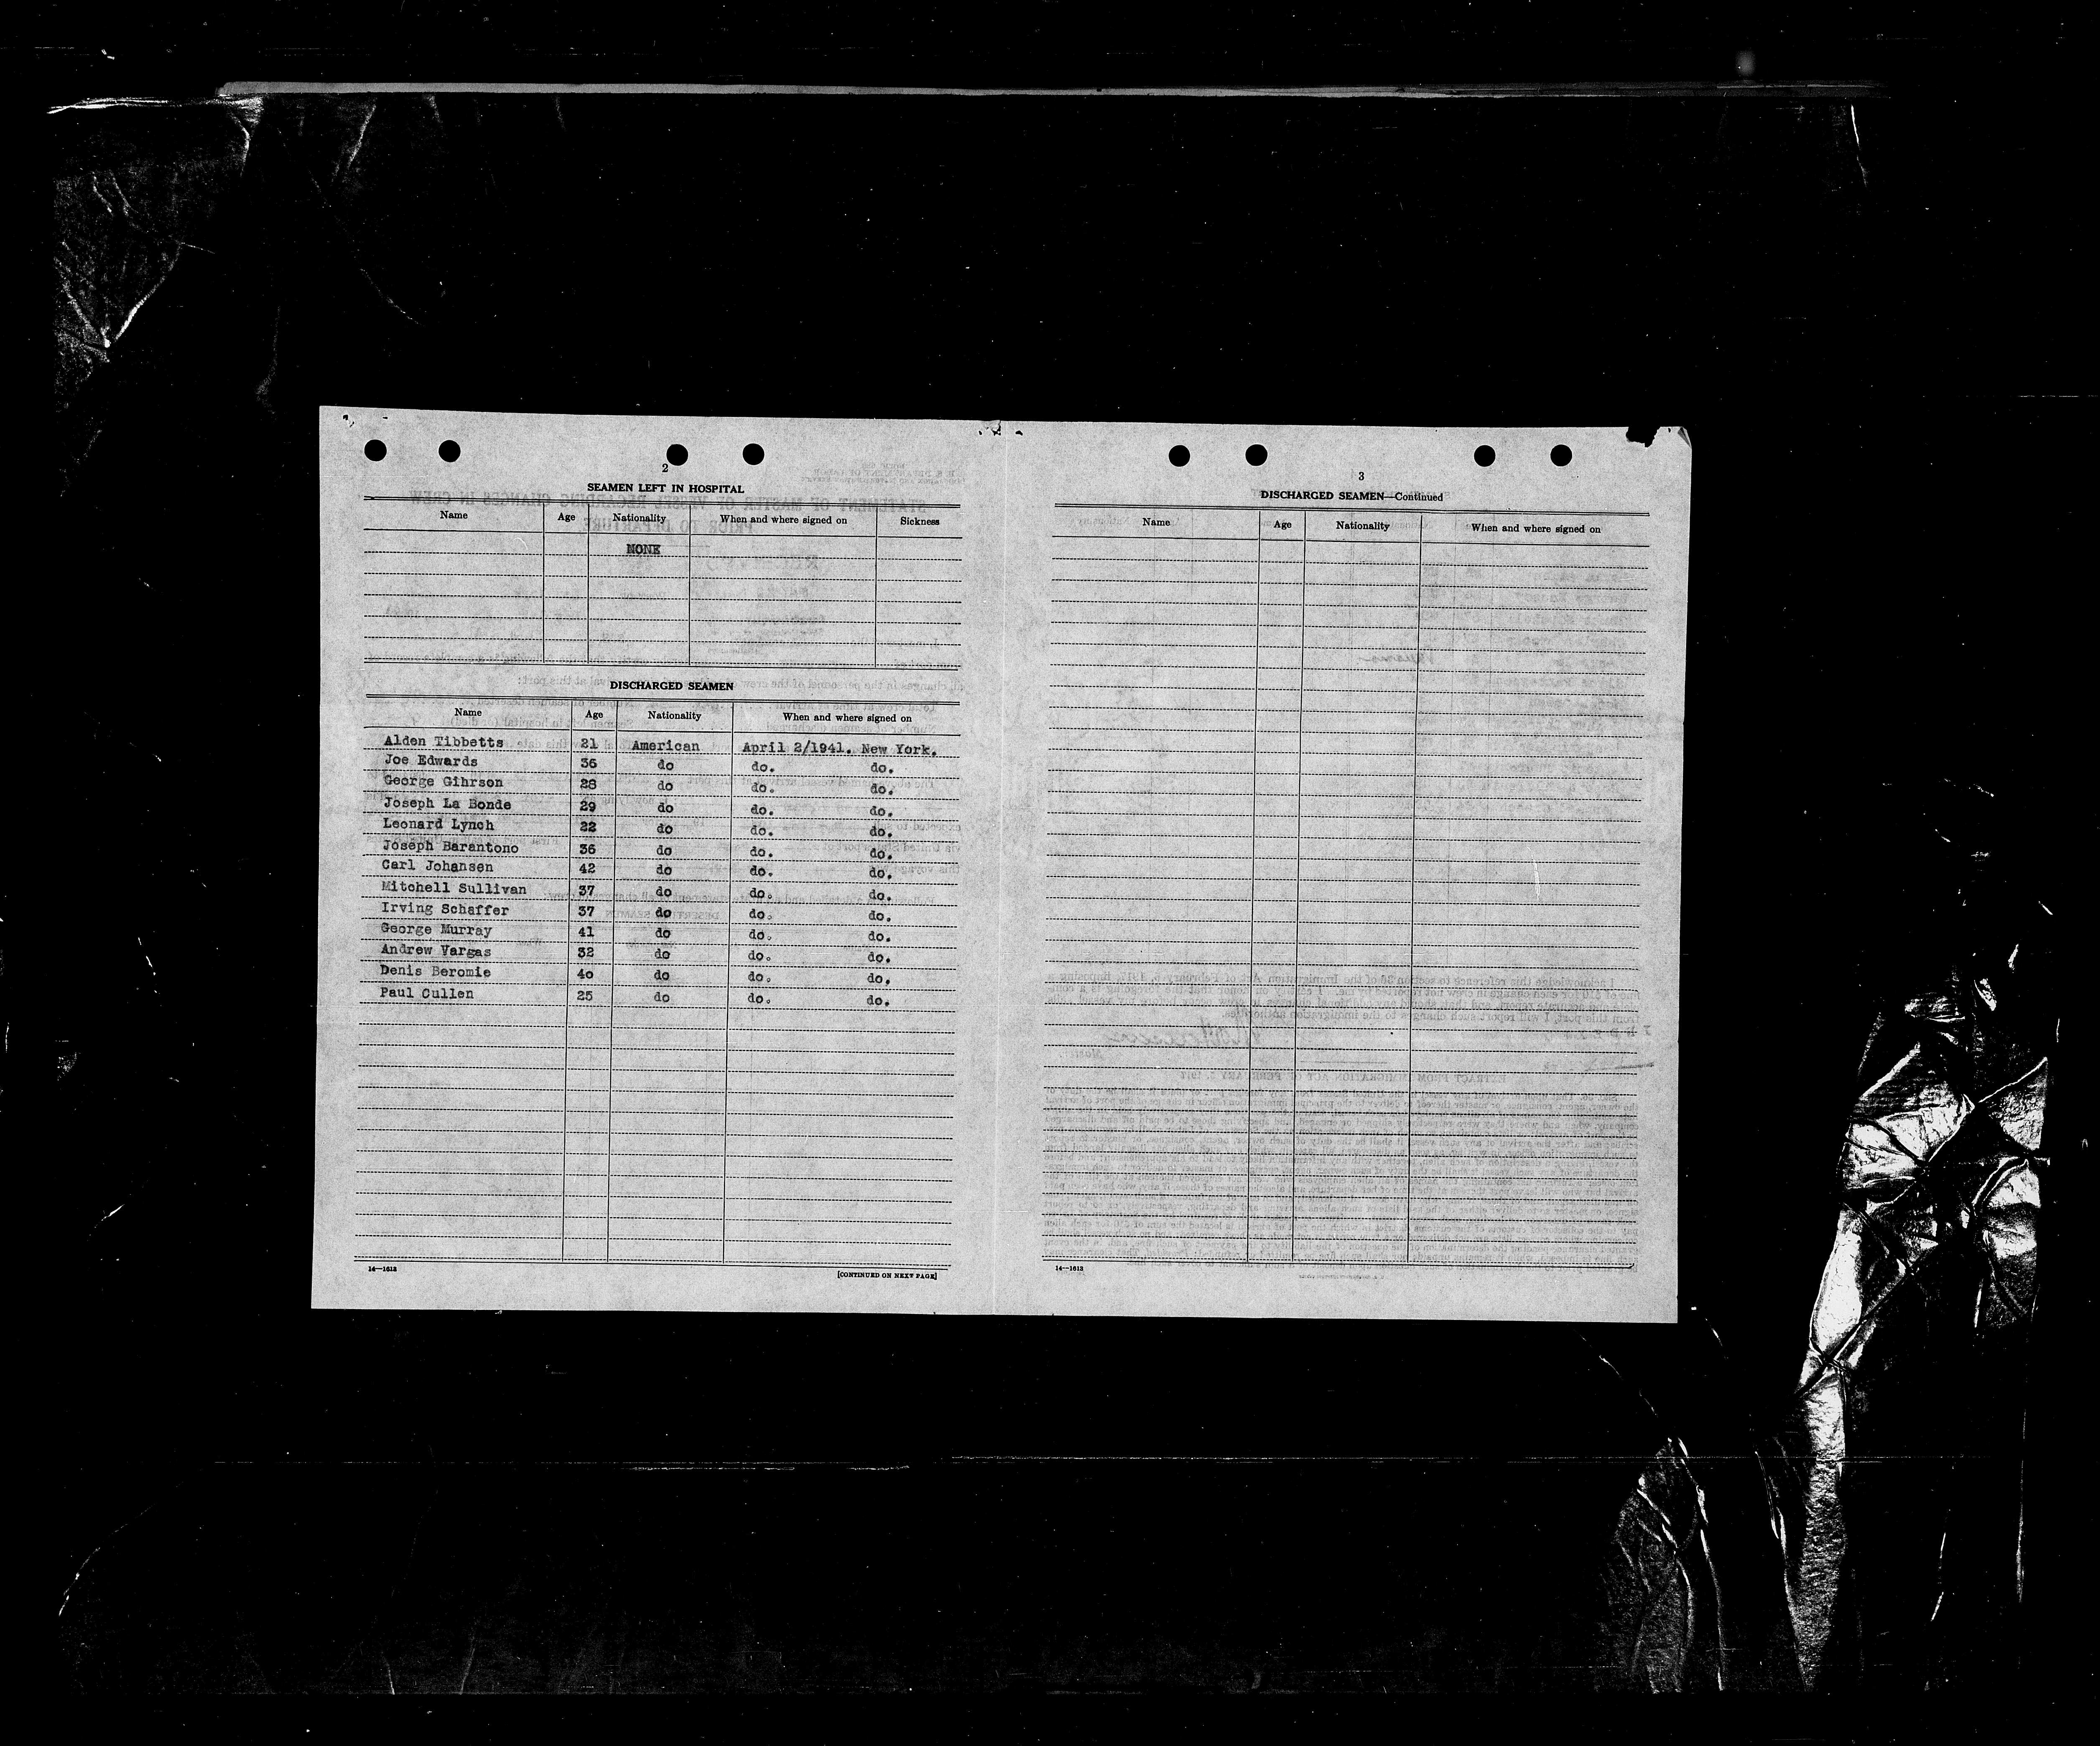 2
SEAMEN LEFT IN HOSPITAL
Name Age Nationality When and where signed on Sickness
NONE
DISCHARGED SEAMEN
Name Age Nationality When and where signed on
Alden Tibbetts 21 American April 2/1941. New York.
Joe Edwards 36 do do. do.
George Gihrson 28 do do. do.
Joseph La Bonde 29 do do. do.
Leonard Lynch 22 do do. do.
Joseph Barantono 36 do do. do.
Carl Johansen 42 do do. do.
Mitchell Sullivan 37 do do. do.
Irving Schaffer 37 do do. do.
George Murray 41 do do. do.
Andrew Vargas 32 do do. do.
Denis Beromie 40 do do. do.
Paul Cullen 25 do do. do.
14—1613 [CONTINUED ON NEXT PAGE]
3
DISCHARGED SEAMEN—Continued
Name Age Nationality When and where signed on
14—1613